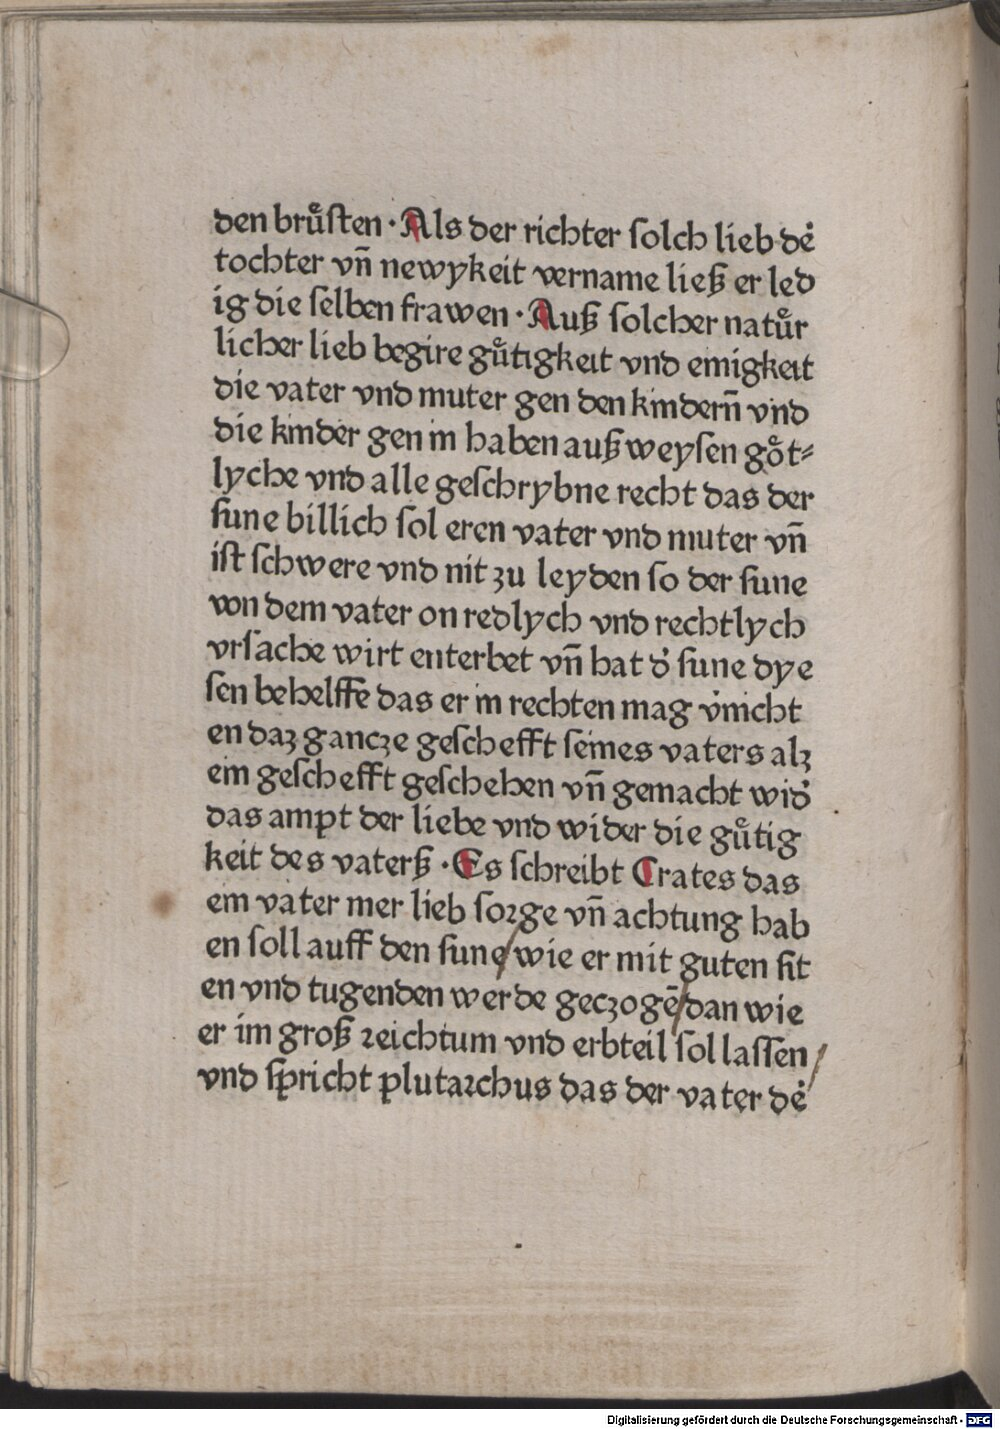 den bruͤſten · Als der richter ſolch lieb de᷒
tochter vn̄ newykeit vername ließ er led
ig die ſelben frawen · Auß ſolcher natuͤr
licher lieb begire guͤtigkeit vnd einigkeit
die vater vnd muter gen den kindern̄ vnd
die kinder gen in haben außweyſen goͤt⸗
lyche vnd alle geſchrybne recht das der
ſune billich ſol eren vater vnd muter vn̄
iſt ſchwere vnd nit zu leyden ſo der ſune
von dem vater on redlych vnd rechtlych
vrſache wirt enterbet vn̄ hat d᷒ ſune dye
ſen behelffe das er in rechten mag v᷒nicht
en daz gancze geſchefft ſeines vaters alz
ein geſchefft geſchehen vn̄ gemacht wid᷒
das ampt der liebe vnd wider die guͤtig
keit des vaterß · Es ſchreibt Crates das
ein vater mer lieb ſorge vn̄ achtung hab
en ſoll auff den ſune/wie er mit guten ſit
en vnd tugenden werde geczogē/dan wie
er im groß reichtum vnd erbteil ſol laſſen/
vnd ſpricht plutarchus das der vater de᷒
Digitalisierung gefördert durch die Deutsche Forschungsgemeinschaft - DFG